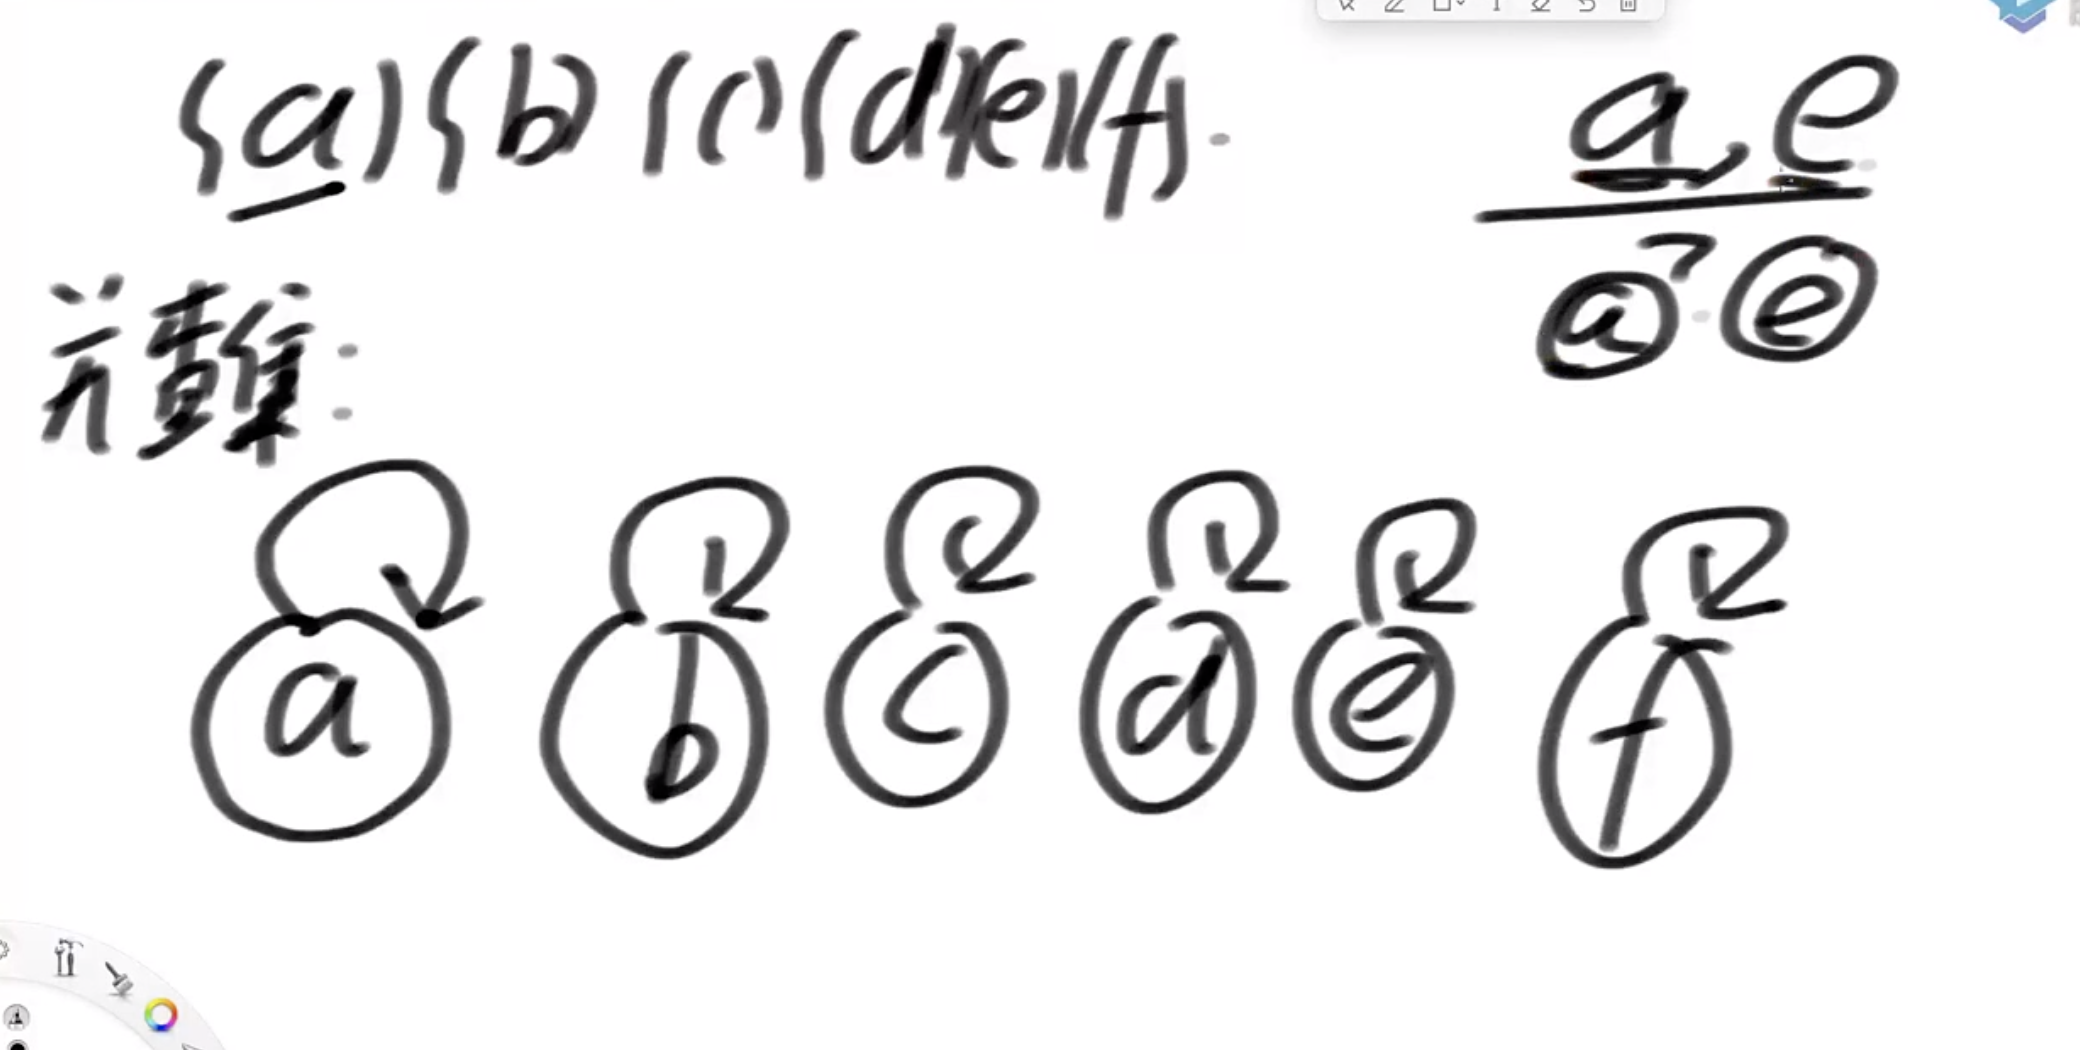 {a} {b} {c} {d} {e} {f}.
a, e
a ? e
并查集:
a b c d e f